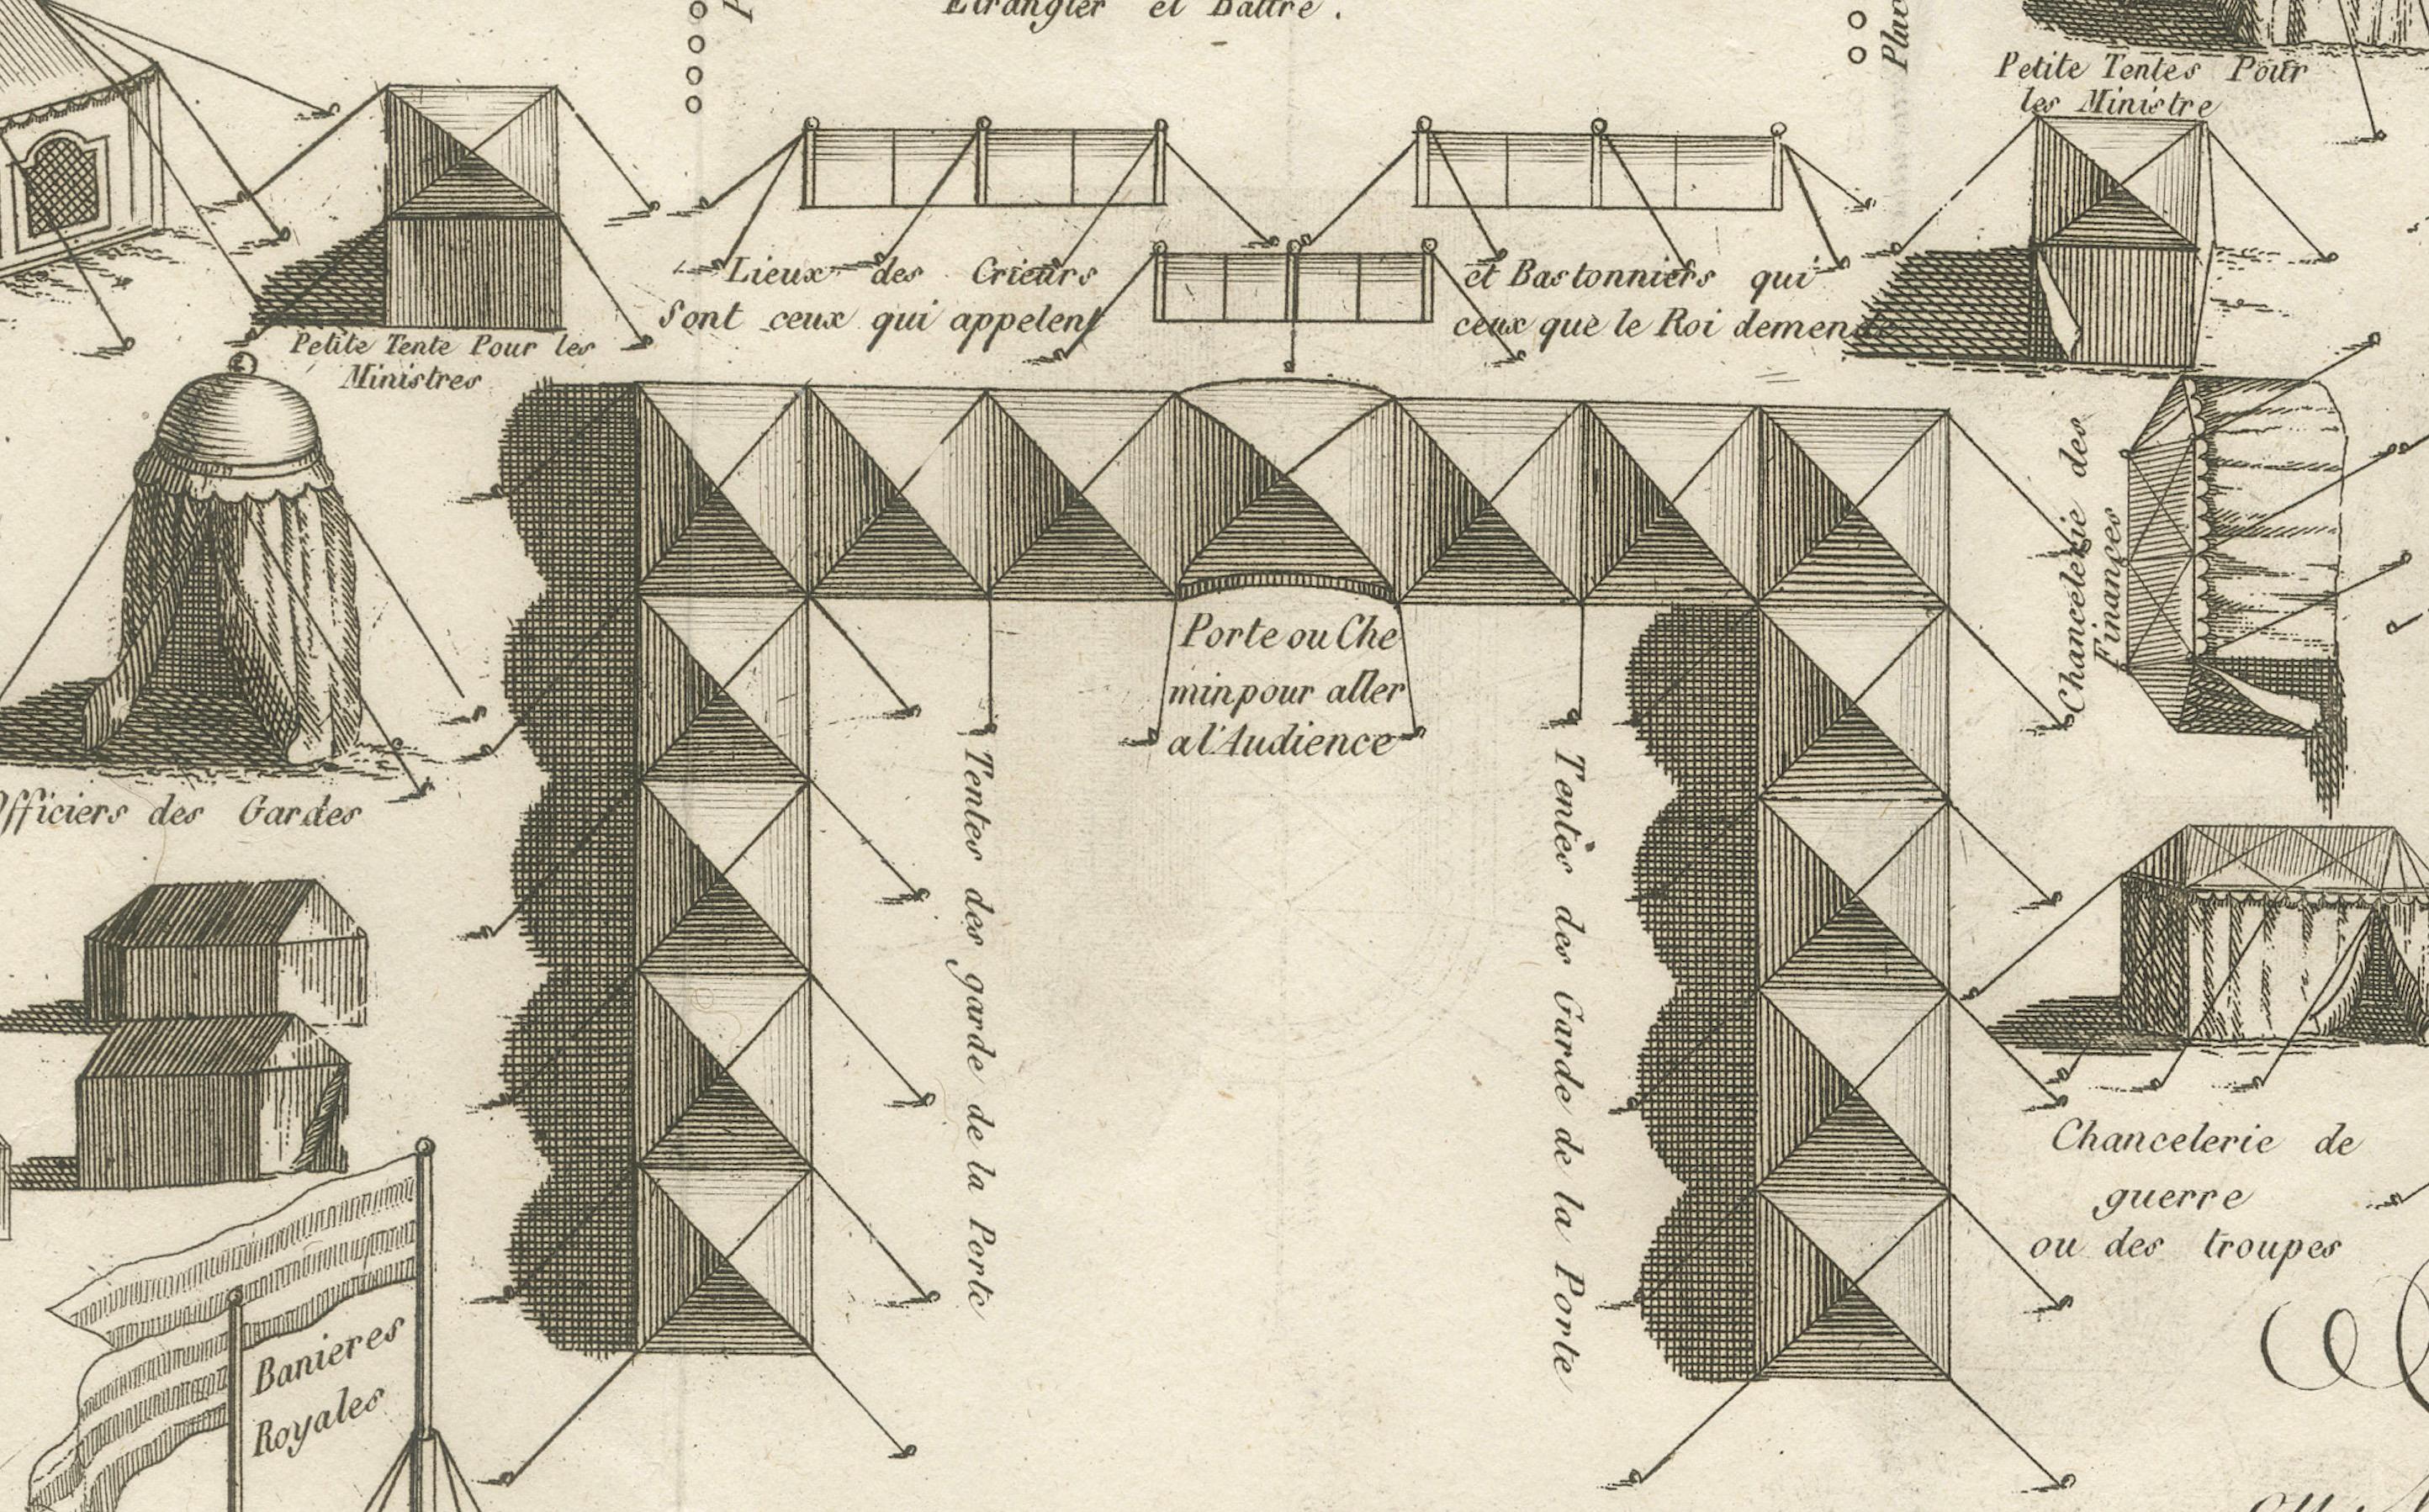 Etrangler et Battre.
Petite Tentes Pour
les Ministre
Lieux des Crieurs
et Bastonniers qui
Sont ceux qui appelent
ceux que le Roi demende
Petite Tente Pour les
Ministres
Chancelerie des
Finançes
Porte ou Che
min pour aller
a l'Audience
Tentes des garde de la Porte
Tentès dès Garde de la Porte
Officiers des Gardes
Chancelerie de
guerre
ou des troupes
Banieres
Royales